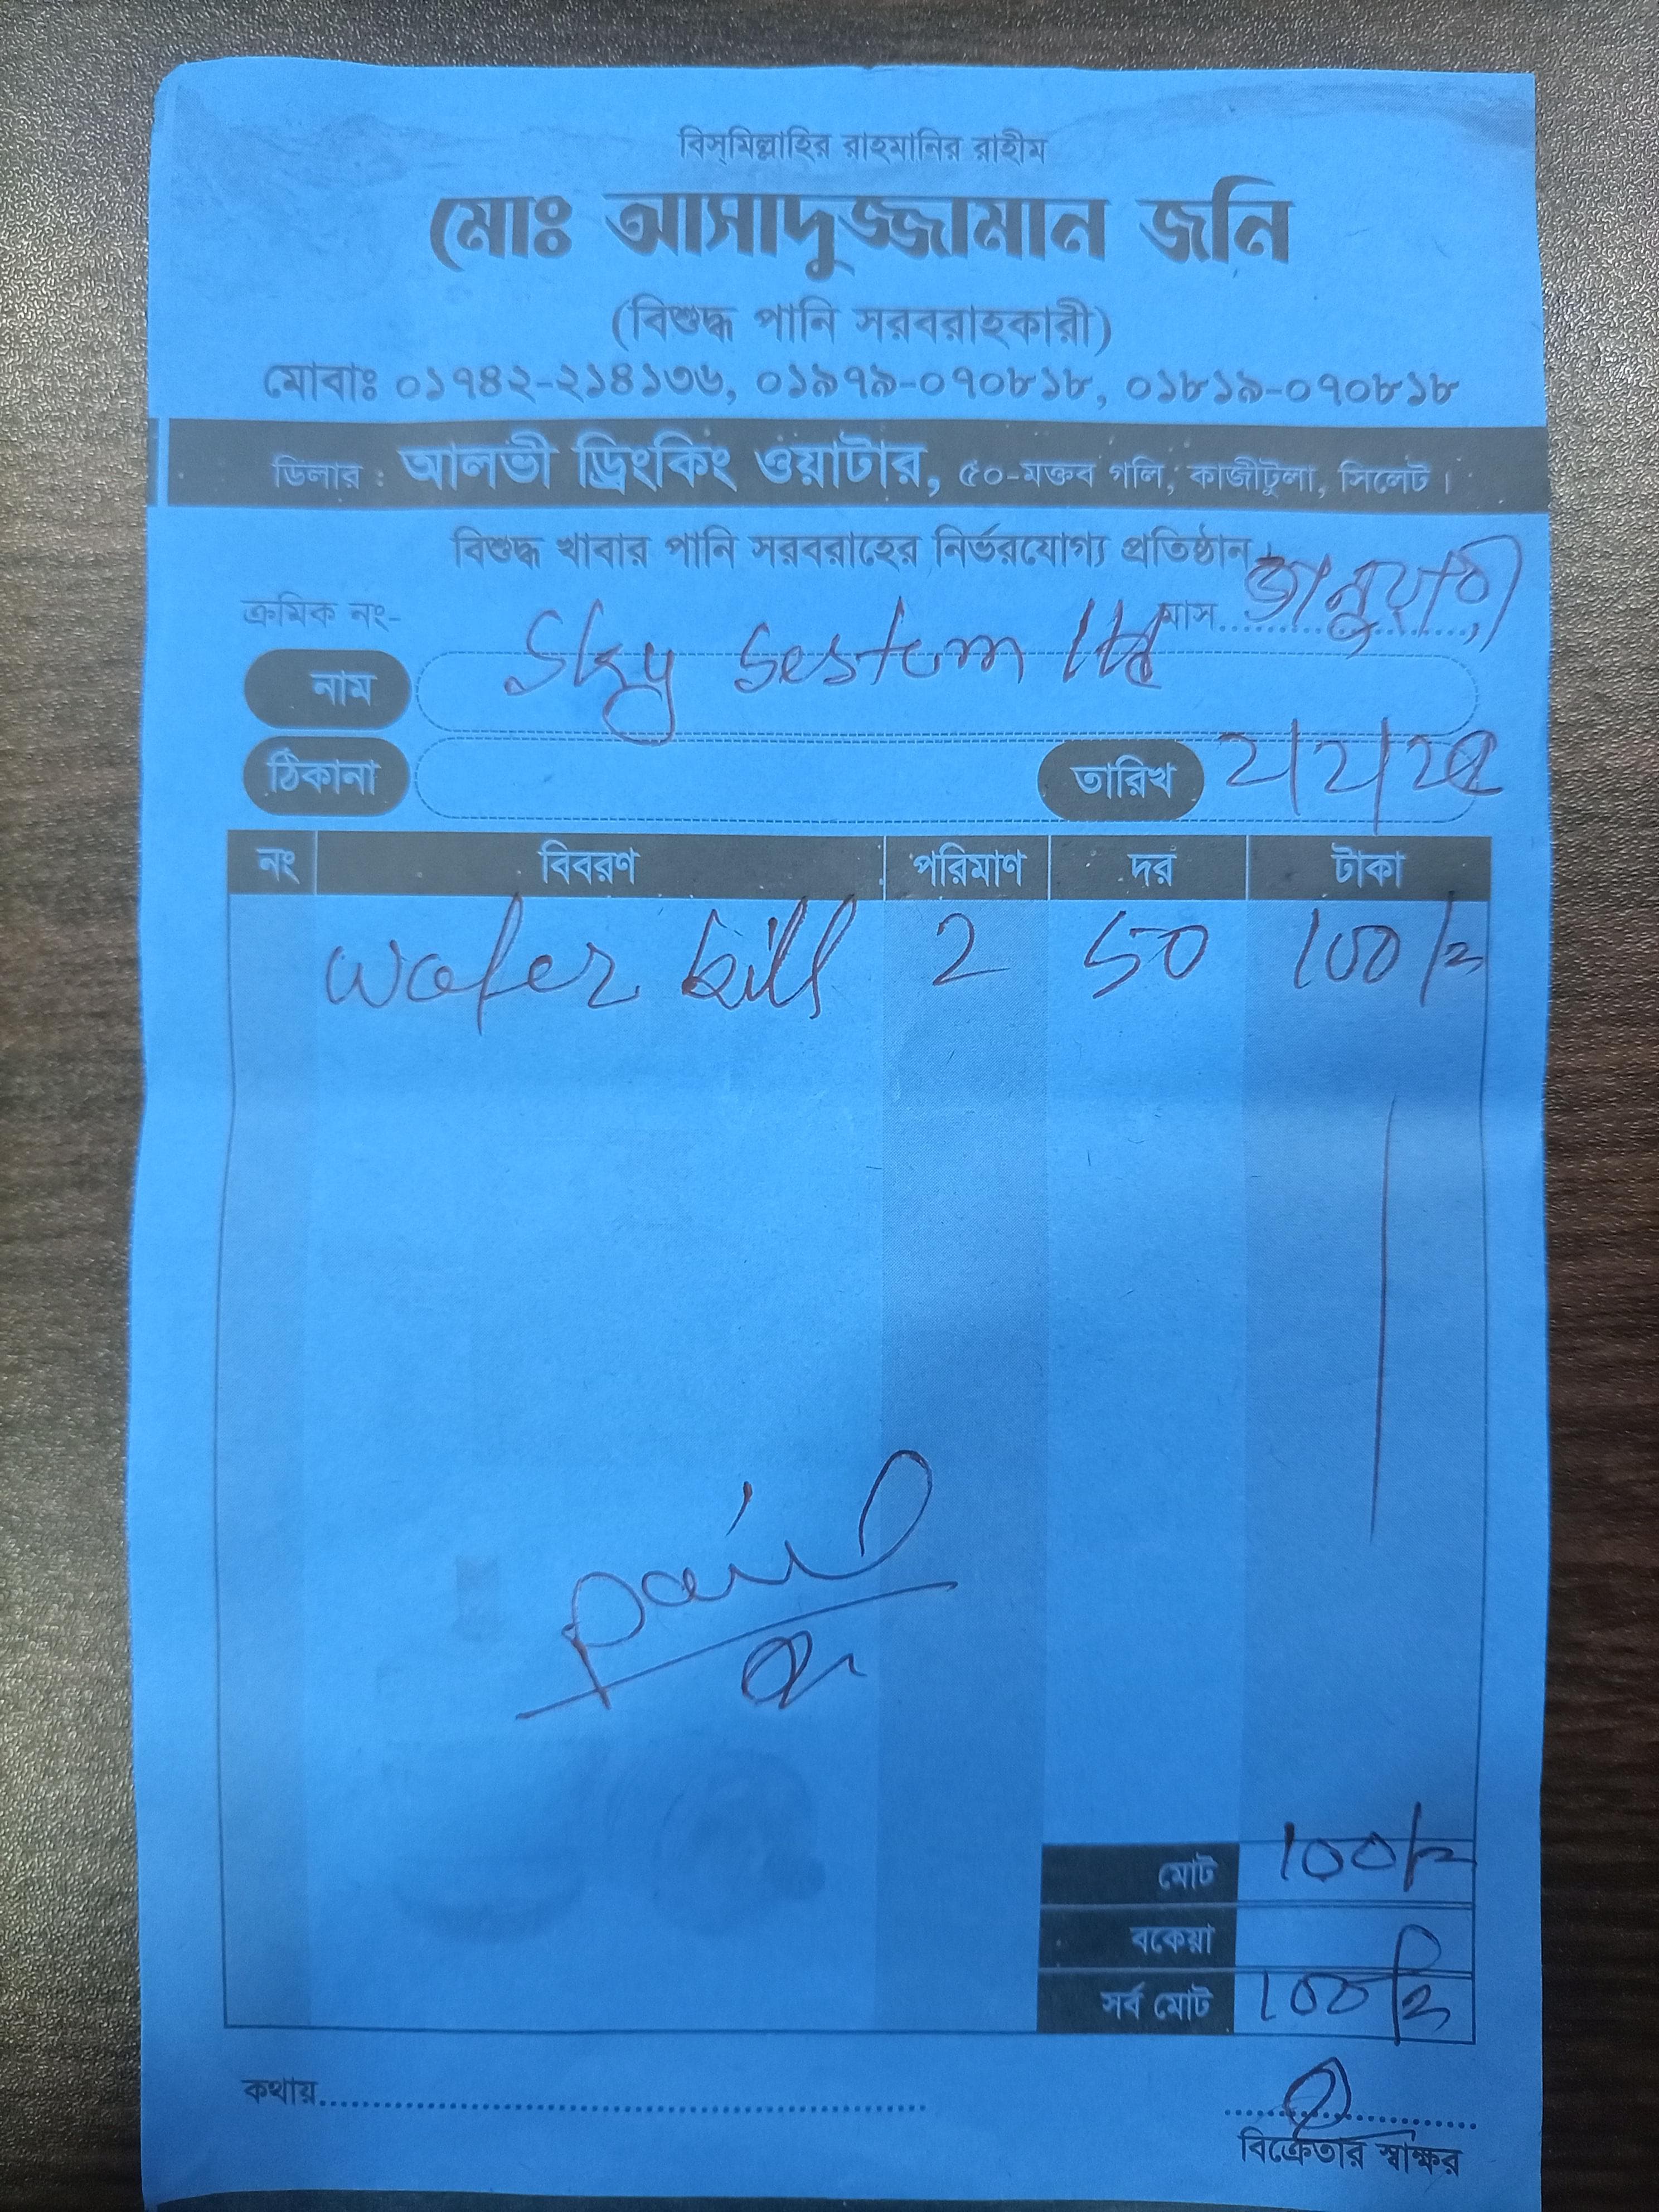 বিস্‌মিল্লাহির রাহমানির রাহীম
মোঃ আসাদুজ্জামান জনি
(বিশুদ্ধ পানি সরবরাহকারী)
মোবাঃ ০১৭৪২-২১৪১৩৬, ০১৯৭৯-০৭০৮১৮, ০১৮১৯-০৭০৮১৮
ডিলার : আলভী ড্রিংকিং ওয়াটার, ৫০-মক্তব গলি, কাজীটুলা, সিলেট।
বিশুদ্ধ খাবার পানি সরবরাহের নির্ভরযোগ্য প্রতিষ্ঠান
ক্রমিক নং- মাস.............
নাম Sky Sestem ltd
ঠিকানা তারিখ
নং বিবরণ পরিমাণ দর টাকা
Water bill 2 50 100/=
paid
মোট 100/=
বকেয়া
সর্ব মোট 100/=
কথায়..........................................................
বিক্রেতার স্বাক্ষর